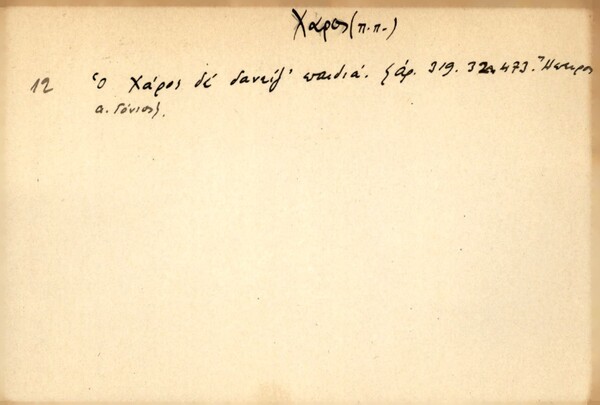 Χάρος (π.π.)
12 Ὁ Χάρος δέ δανείζ' παιδιά. ζάρ. 319. 32 473. Ἤπειρος
α. Γόνιος